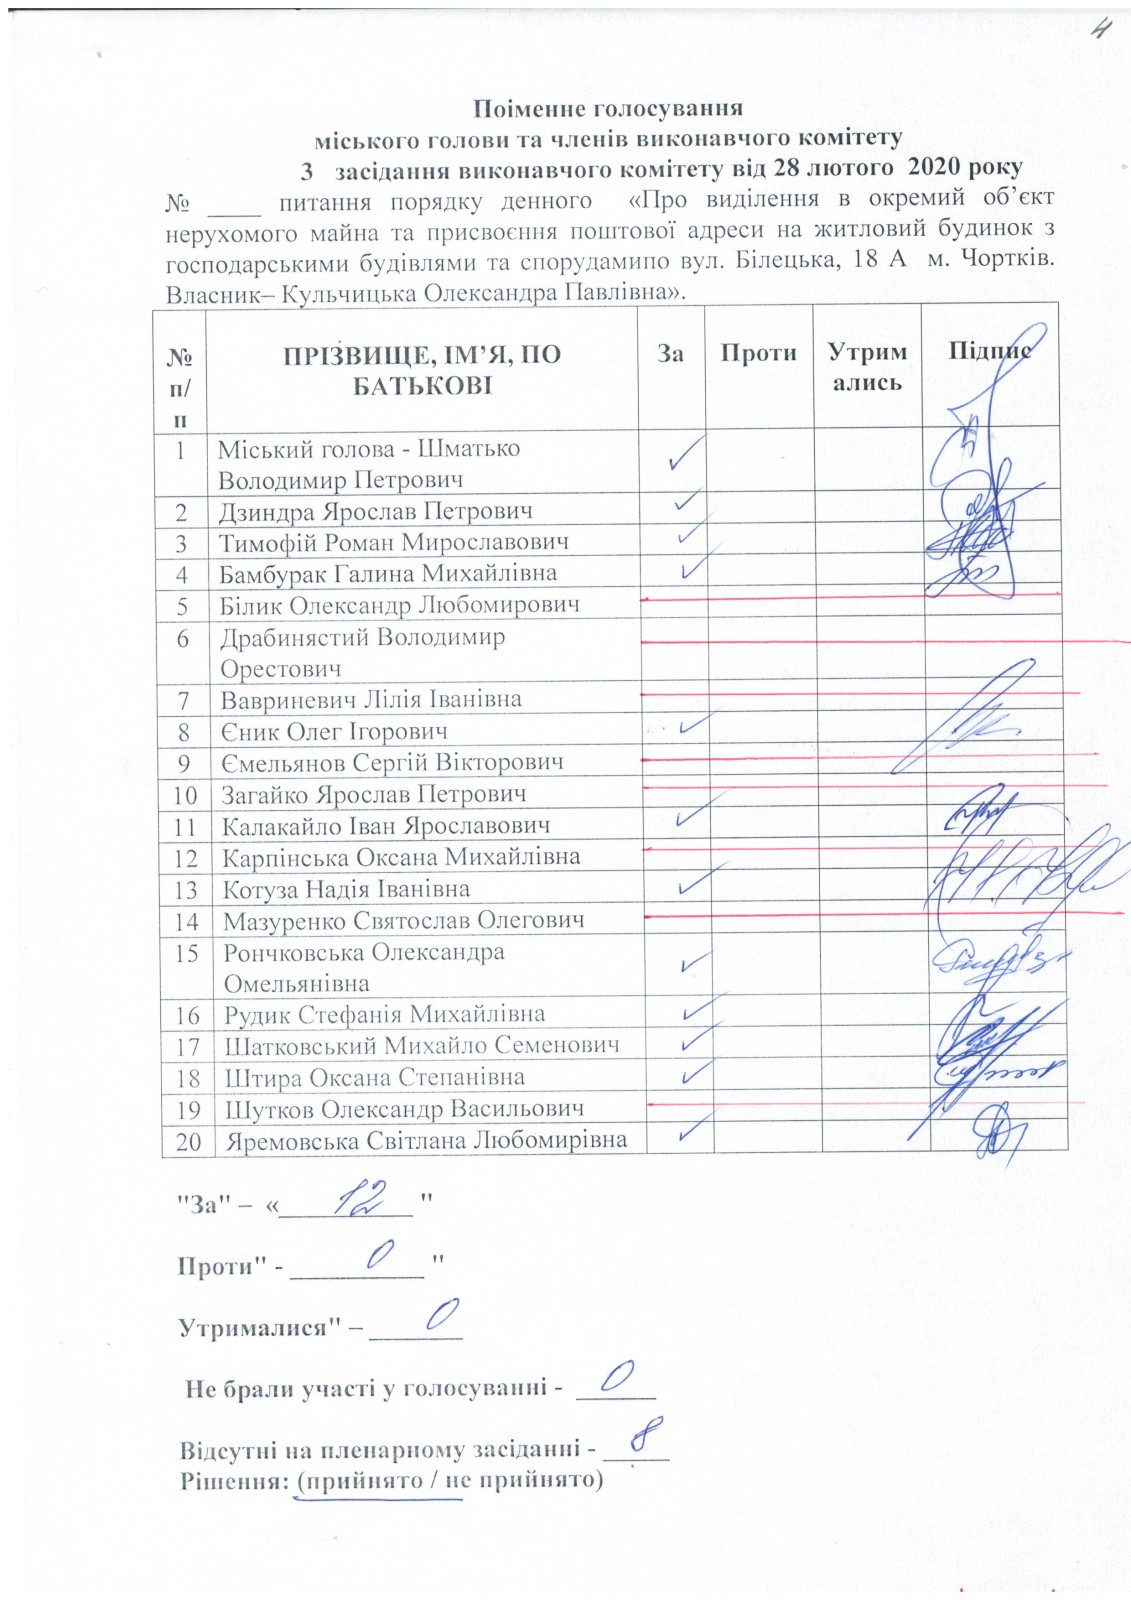 4
Поіменне голосування
міського голови та членів виконавчого комітету
3 засідання виконавчого комітету від 28 лютого 2020 року
№ ____ питання порядку денного «Про виділення в окремий об’єкт
нерухомого майна та присвоєння поштової адреси на житловий будинок з
господарськими будівлями та спорудамипо вул. Білецька, 18 А м. Чортків.
Власник– Кульчицька Олександра Павлівна».
№ п/п ПРІЗВИЩЕ, ІМ’Я, ПО БАТЬКОВІ За Проти Утримались Підпис
1 Міський голова - Шматько
Володимир Петрович ✓
2 Дзиндра Ярослав Петрович ✓
3 Тимофій Роман Мирославович ✓
4 Бамбурак Галина Михайлівна ✓
5 Білик Олександр Любомирович
6 Драбинястий Володимир
Орестович
7 Вавриневич Лілія Іванівна
8 Єник Олег Ігорович ✓
9 Ємельянов Сергій Вікторович
10 Загайко Ярослав Петрович
11 Калакайло Іван Ярославович ✓
12 Карпінська Оксана Михайлівна
13 Котуза Надія Іванівна ✓
14 Мазуренко Святослав Олегович
15 Рончковська Олександра
Омельянівна ✓
16 Рудик Стефанія Михайлівна ✓
17 Шатковський Михайло Семенович ✓
18 Штира Оксана Степанівна ✓
19 Шутков Олександр Васильович
20 Яремовська Світлана Любомирівна ✓
"За" – «12 "
Проти" - 0 "
Утрималися" – 0
Не брали участі у голосуванні - 0
Відсутні на пленарному засіданні - 8
Рішення: (прийнято / не прийнято)